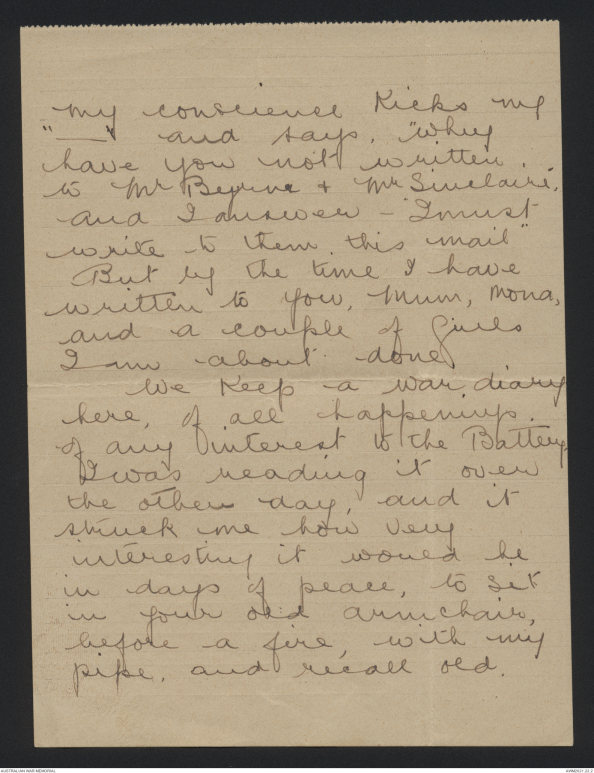 my conscience Kicks my
"—" and says, "Why
have you not written
to Mr Byrne & Mr Sinclaire,
and I answer – "I must
write to them this mail"
But by the time I have
written to you, Mum, Mona,
and a couple of Girls
I am about done
We Keep a war diary
here, of all happenings
of any interest to the Battery
I was reading it over
the other day, and it
struck me how very
interesting it would be
in days of peace, to sit
in your old armchair,
before a fire, with my
pipe, and recall old.
AUSTRALIAN WAR MEMORIAL